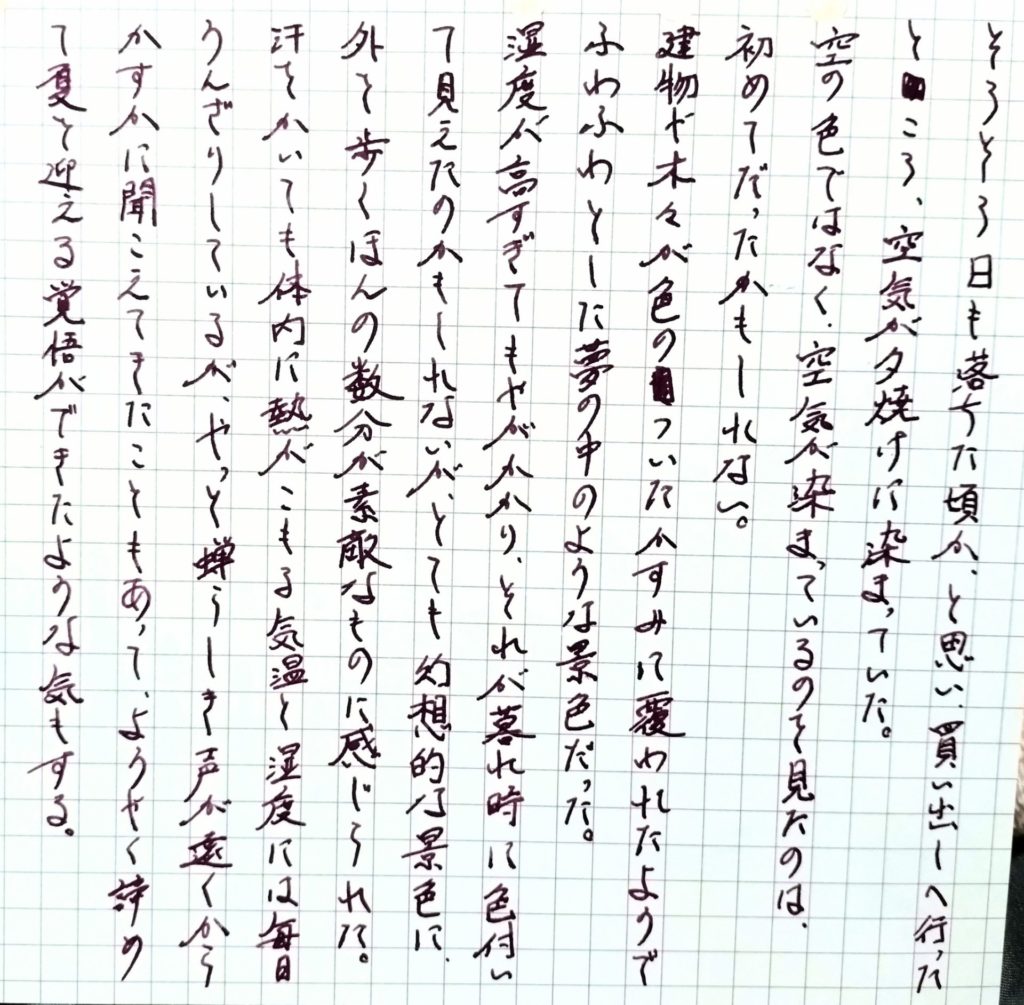 そろそろ日も落ちた頃か、と思い、買い出しへ行った
ところ、空気が夕焼けに染まっていた。
空の色ではなく、空気が染まっているのを見たのは、
初めてだったかもしれない。
建物や木々が色のついたかすみに覆われたようで
ふわふわとした夢の中のような景色だった。
湿度が高すぎてもやがかかり、それが暮れ時に色付い
て見えたのかもしれないが、とても幻想的な景色に、
外を歩くほんの数分が素敵なものに感じられた。
汗をかいても体内に熱がこもる気温と湿度には毎日
うんざりしているが、やっと蝉らしき声が遠くから
かすかに聞こえてきたこともあって、ようやく諦め
て夏を迎える覚悟ができたような気もする。